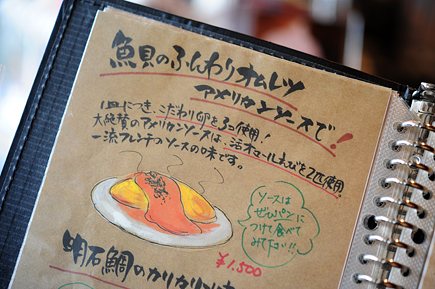 魚貝のふんわりオムレツ
アメリカンソースで!
1皿につき、こだわり卵を3コ使用!
大絶賛のアメリカンソースは、活オマールえびを2匹使用
一流フレンチのソースの味です。
ソースは
ぜひパンに
つけて食べて
みて下さい!!
¥1,500
明石鯛のカリカリ